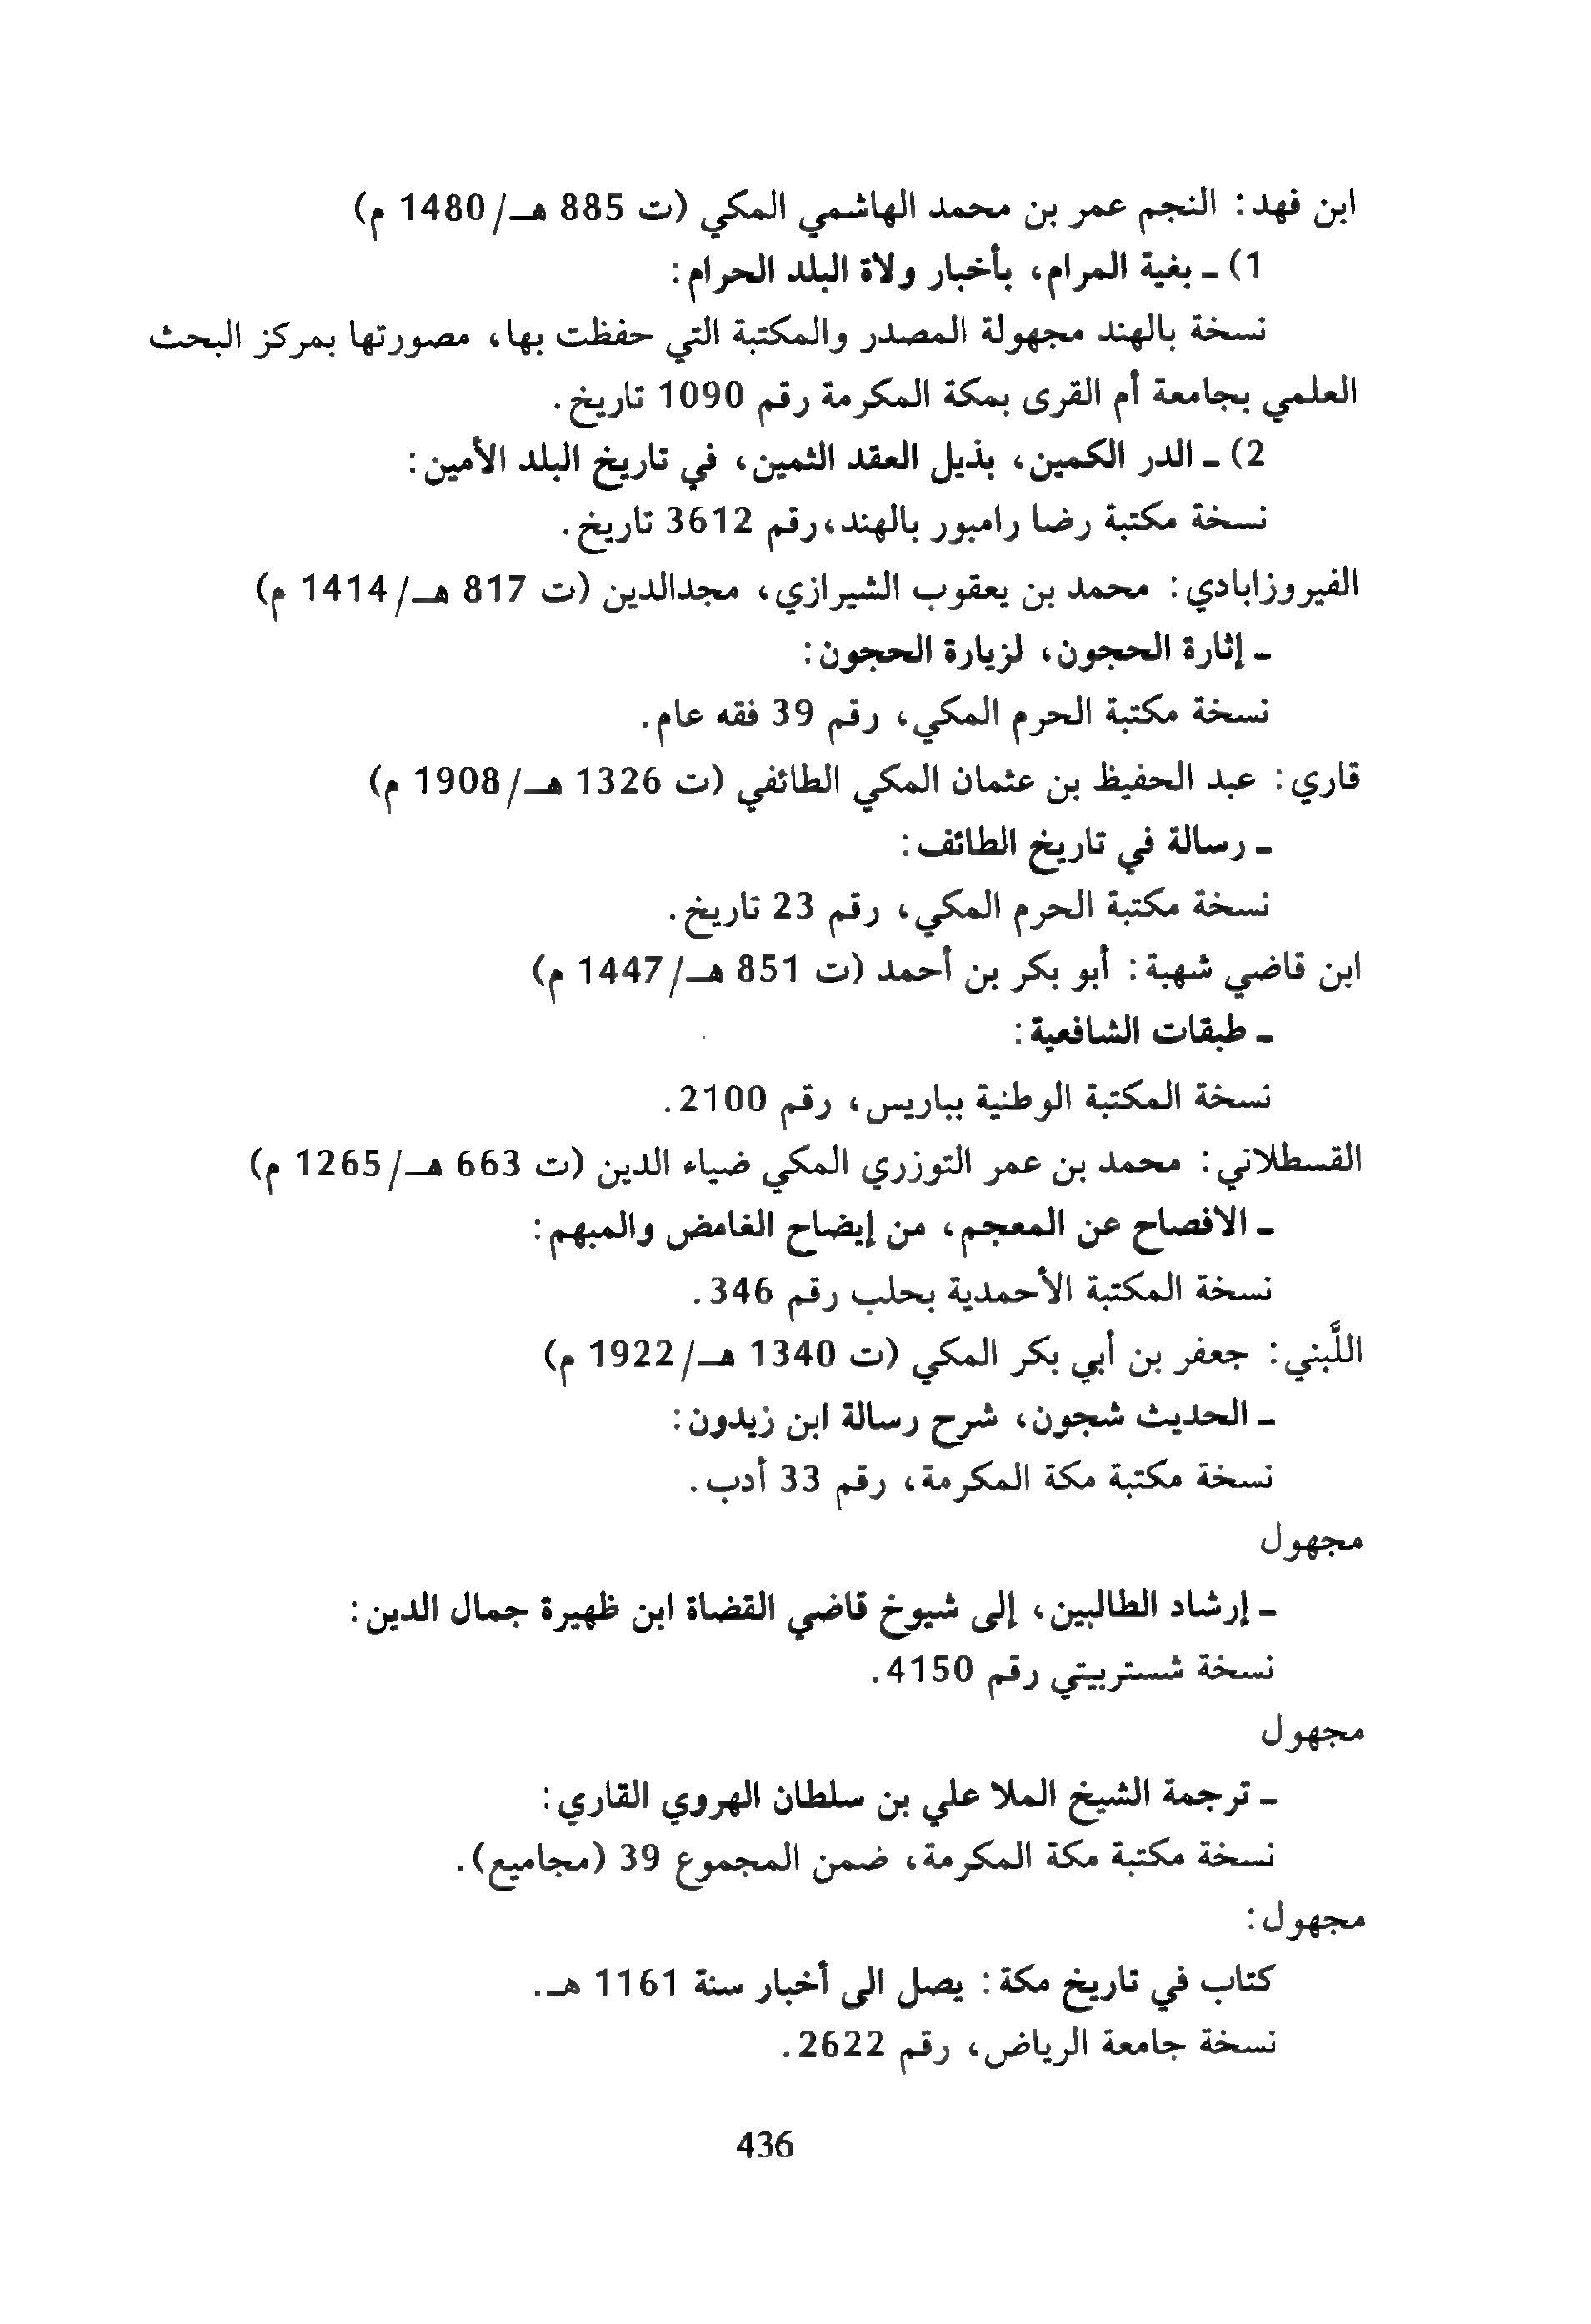 ابن فهد: النجم عمر بن محمد الهاشمي المكي (ت 885 هـ/ 1480 م)
1) ـ بغية المرام، بأخبار ولاة البلد الحرام:
نسخة بالهند مجهولة المصدر والمكتبة التي حفظت بها، مصورتها بمركز البحث
العلمي بجامعة أم القرى بمكة المكرمة رقم 1090 تاريخ.
2) ـ الدر الكمين، بذيل العقد الثمين، في تاريخ البلد الأمين:
نسخة مكتبة رضا رامبور بالهند،رقم 3612 تاريخ.
الفيروزابادي: محمد بن يعقوب الشيرازي، مجدالدين (ت 817 هـ/ 1414 م)
ـ إثارة الحجون، لزيارة الحجون:
نسخة مكتبة الحرم المكي، رقم 39 فقه عام.
قاري: عبد الحفيظ بن عثمان المكي الطائفي (ت 1326 هـ/ 1908 م)
ـ رسالة في تاريخ الطائف:
نسخة مكتبة الحرم المكي، رقم 23 تاريخ.
ابن قاضي شهبة: أبو بكر بن أحمد (ت 851 هـ/ 1447 م)
ـ طبقات الشافعية:
نسخة المكتبة الوطنية بباريس، رقم 2100.
القسطلاني: محمد بن عمر التوزري المكي ضياء الدين (ت 663 هـ/ 1265 م)
ـ الافصاح عن المعجم، من إيضاح الغامض والمبهم:
نسخة المكتبة الأحمدية بحلب رقم 346.
اللَّبني: جعفر بن أبي بكر المكي (ت 1340 هـ/ 1922 م)
ـ الحديث شجون، شرح رسالة ابن زيدون:
نسخة مكتبة مكة المكرمة، رقم 33 أدب.
مجهول
ـ إرشاد الطالبين، إلى شيوخ قاضي القضاة ابن ظهيرة جمال الدين:
نسخة شستربيتي رقم 4150.
مجهول
ـ ترجمة الشيخ الملا علي بن سلطان الهروي القاري:
نسخة مكتبة مكة المكرمة، ضمن المجموع 39 (مجاميع).
مجهول:
كتاب في تاريخ مكة: يصل الى أخبار سنة 1161 هـ.
نسخة جامعة الرياض، رقم 2622.
436